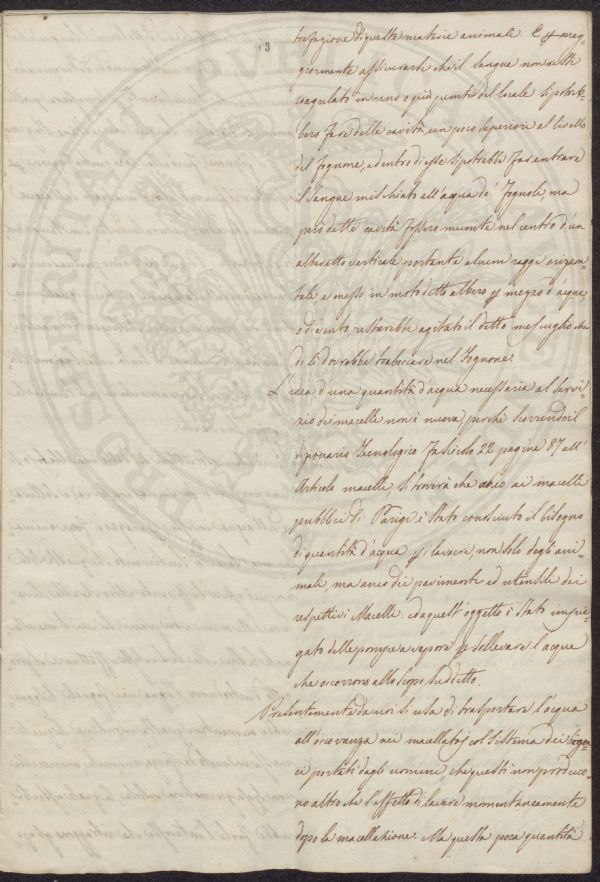 3
trefazione di queste materie animali. E p mag-
giormente assicurarsi che il sangue non resti
coagulato in uno o più punti del locale si potreb-
bero fare delle cavità un poco superiore al livello
del fognone, e dentro di esse si potrebbe far entrare
il sangue mischiato all'acqua de' fognoli, ma
però dette cavità fossero munite nel centro d'un
alberetto verticale portante alcuni raggi orizon-
tale, e messo in moto detto albero p mezzo d'acqua
o di vento, resterebbe agitato il detto mescuglio che
di lì dovrebbe traboccare nel Fognone.
L'idea d'una quantità d'acqua necessaria al servi-
zio dei macelli non è nuova, perché scorrendo il
dizionario Tecnologico Fascicolo 22 pagine 87 all'
Articolo macelli, si troverà che anco ai macelli
pubblici di Parigi è stato conosciuto il bisogno
di quantità d'acqua p i lavacri, non solo degli ani-
mali, ma anco dei pavimenti ed utensili dei
respettivi Macelli: ed a quest'oggetto è stato impie-
gato delle pompe a vapore p sollevare l'acqua
che occorrono allo scopo suddetto.
Presentemente da noi si usa di trasportare l'acqua
all'occorranza nei macellatoj col sistema dei bigon-
ci portati dagli uomini, che questi non produco-
no altro che l'effetto di lavare momentaneamente
dopo la macellazione. Ma questa poca quantità